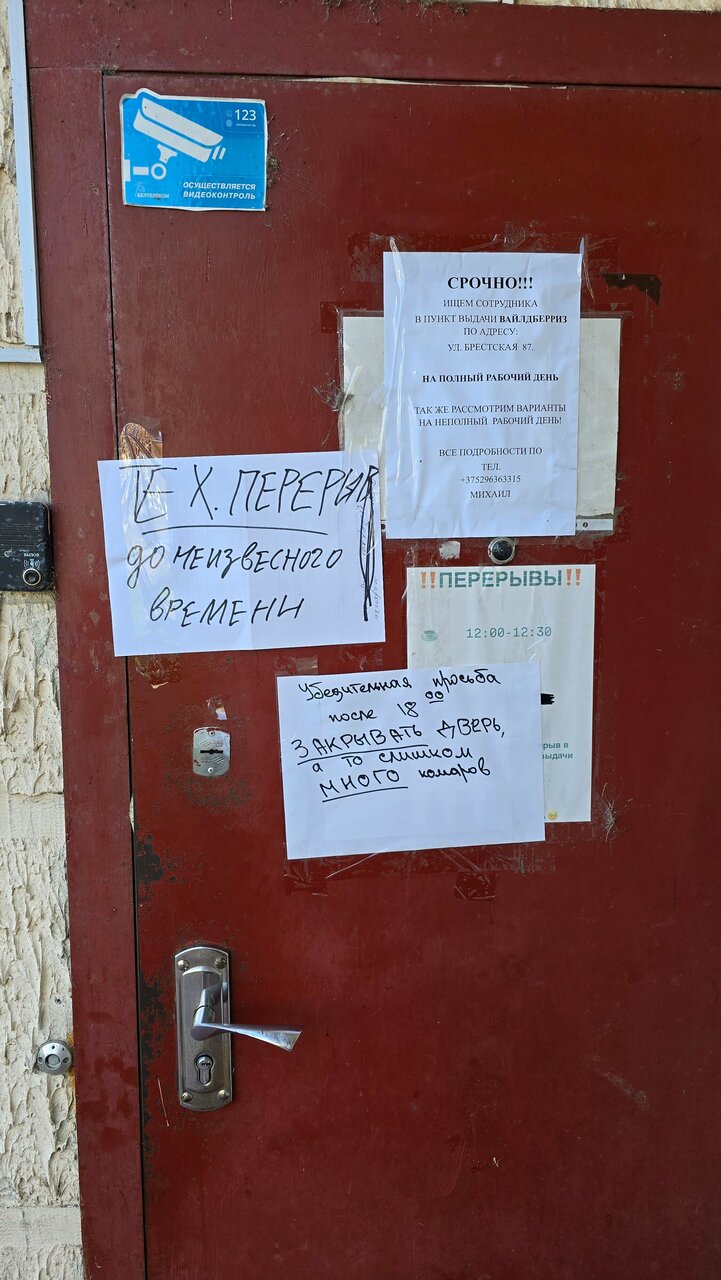 123
БЕЛТЕЛЕКОМ
ОСУЩЕСТВЛЯЕТСЯ
ВИДЕОКОНТРОЛЬ
СРОЧНО!!!
ИЩЕМ СОТРУДНИКА
В ПУНКТ ВЫДАЧИ ВАЙЛДБЕРРИЗ
ПО АДРЕСУ:
УЛ. БРЕСТСКАЯ 87.
НА ПОЛНЫЙ РАБОЧИЙ ДЕНЬ
ТАК ЖЕ РАССМОТРИМ ВАРИАНТЫ
НА НЕПОЛНЫЙ РАБОЧИЙ ДЕНЬ!
ВСЕ ПОДРОБНОСТИ ПО
ТЕЛ.
+375296363315
МИХАИЛ
ТЕХ. ПЕРЕРЫВ
ДО НЕИЗВЕСНОГО
ВРЕМЕНИ
‼ПЕРЕРЫВЫ‼
12:00-12:30
рыв в
выдачи
Убедительная просьба
после 18 00
ЗАКРЫВАТЬ ДВЕРЬ,
а то слишком
МНОГО комаров